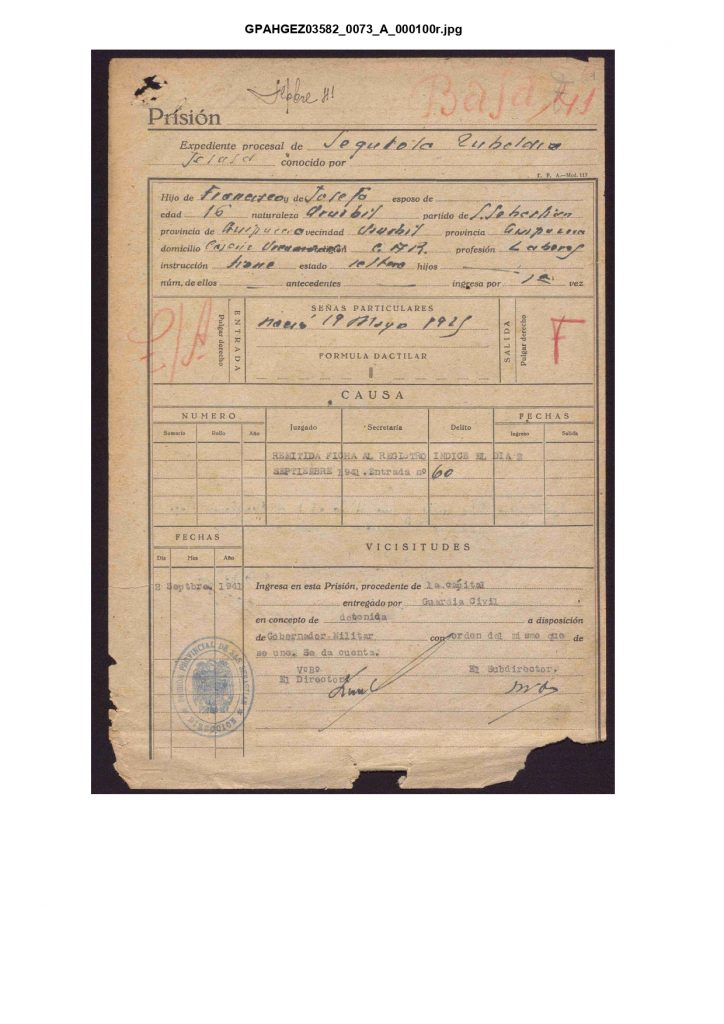 GPAHGEZ03582_0073_A_000100r.jpg
Baja
Prisión
Expediente procesal de Segurola Zubeldia
conocido por
T. P. A.—Mod. 117
Hijo de Francisco y de Josefa esposo de
edad 16 naturaleza Usurbil partido de S. Sebastian
provincia de Guipuzcoa vecindad Usurbil provincia Guipuzcoa
domicilio profesión Labores
instrucción tiene estado soltera hijos
núm. de ellos antecedentes ingresa por 1ª vez
ENTRADA
Pulgar derecho
SEÑAS PARTICULARES
nació 19 Mayo 1925
FORMULA DACTILAR
SALIDA
Pulgar derecho
F
CAUSA
NUMERO
FECHAS
Sumario Rollo Año Juzgado Secretaría Delito Ingreso Salida
REMITIDA FICHA AL REGISTRO INDICE EL DIA 2
SEPTIEMBRE 1941. Entrada nº 60
FECHAS
VICISITUDES
Día Mes Año
2 Septbre. 1941 Ingresa en esta Prisión, procedente de la capital
entregado por Guardia Civil
en concepto de detenida a disposición
de Gobernador Militar con orden del mismo que de
se une. Se da cuenta.
VºBº
El Director
El Subdirector.
PRISION PROVINCIAL DE SAN SEBASTIAN